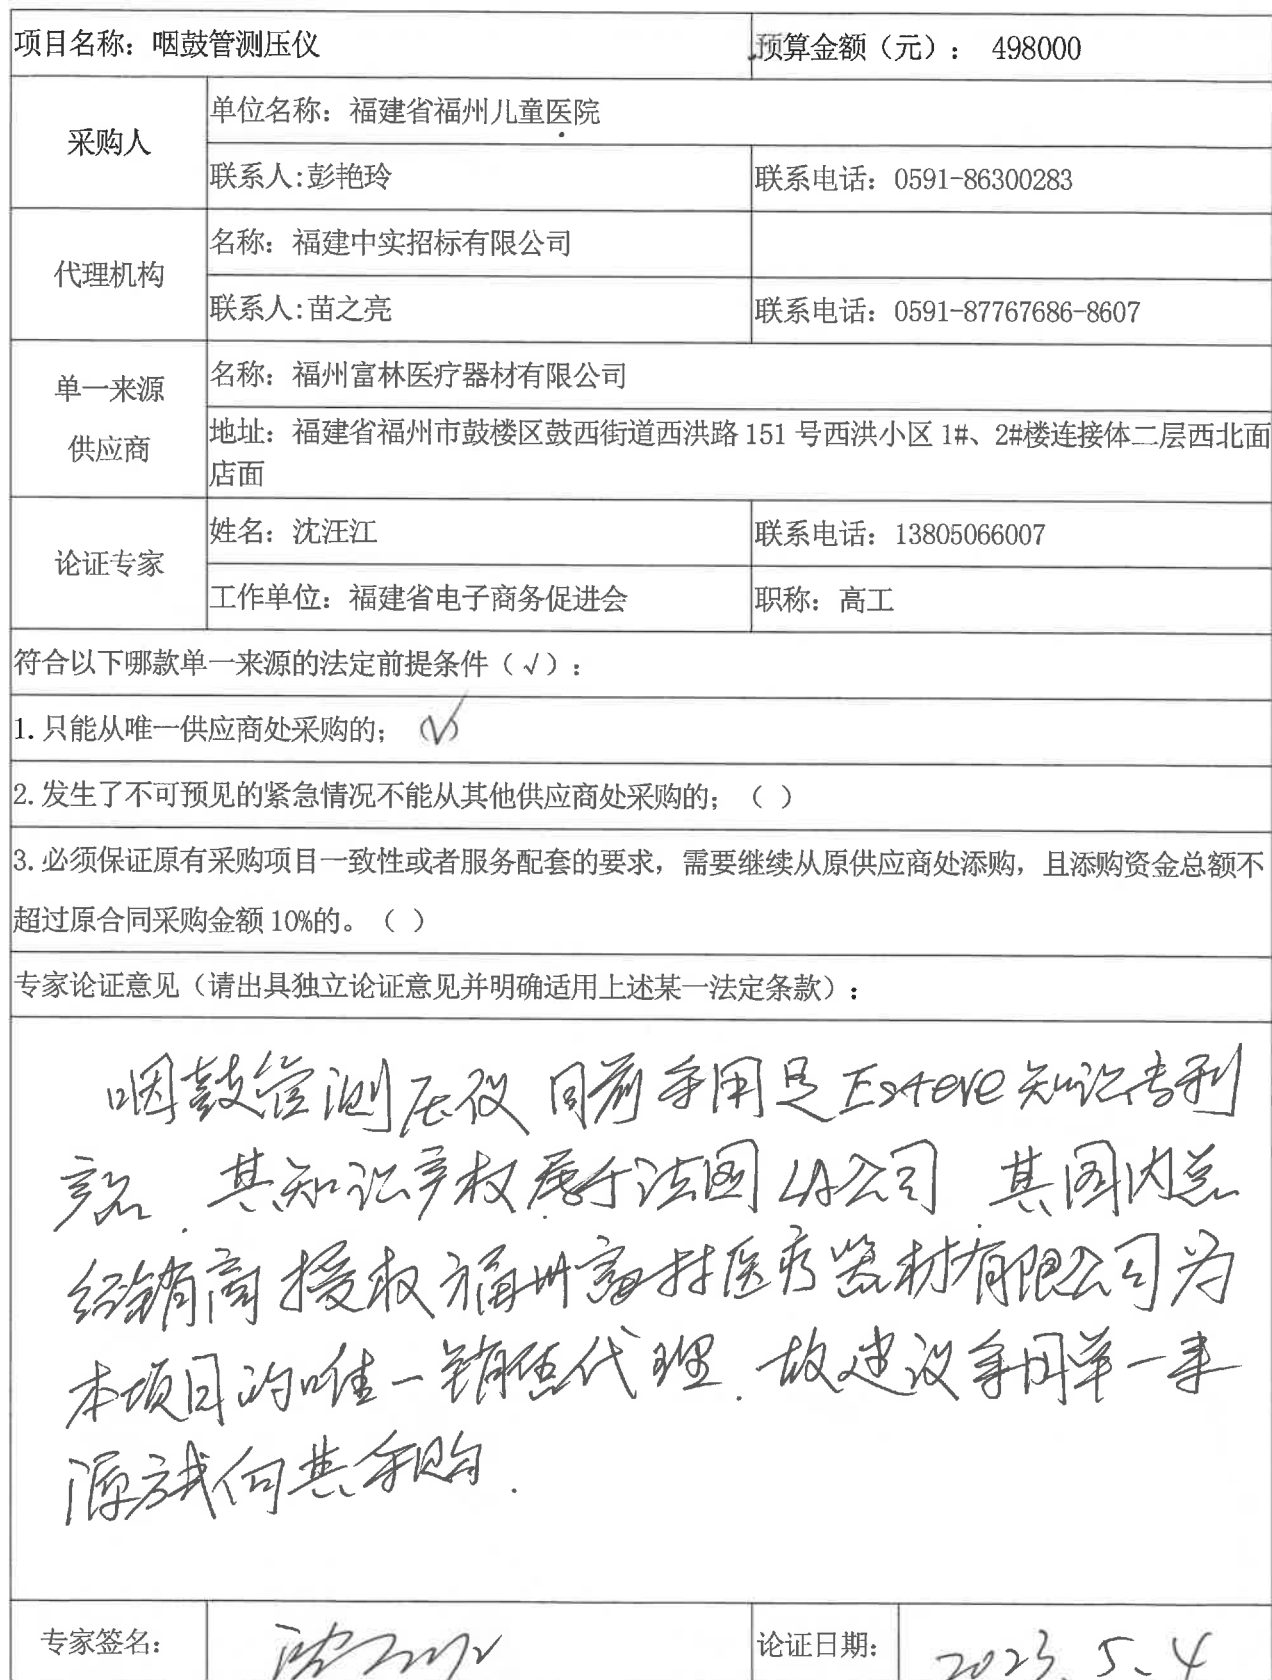 项目名称：咽鼓管测压仪 预算金额（元）： 498000
采购人
单位名称：福建省福州儿童医院
联系人:彭艳玲 联系电话：0591-86300283
代理机构
名称：福建中实招标有限公司
联系人:苗之亮 联系电话：0591-87767686-8607
单一来源
供应商
名称：福州富林医疗器材有限公司
地址：福建省福州市鼓楼区鼓西街道西洪路 151 号西洪小区 1#、2#楼连接体二层西北面
店面
论证专家
姓名：沈汪江 联系电话：13805066007
工作单位：福建省电子商务促进会 职称：高工
符合以下哪款单一来源的法定前提条件（√）：
1.只能从唯一供应商处采购的；（√）
2.发生了不可预见的紧急情况不能从其他供应商处采购的；（ ）
3.必须保证原有采购项目一致性或者服务配套的要求，需要继续从原供应商处添购，且添购资金总额不
超过原合同采购金额 10%的。（ ）
专家论证意见（请出具独立论证意见并明确适用上述某一法定条款）：
咽鼓管测压仪 目前采用是Esteve 知识专利
产品．其知识产权属于法国 LA公司 其国内总
经销商授权福州富林医疗器材有限公司为
本项目的唯一销售代理．故建议采用单一来
源方式向其采购．
专家签名： 论证日期： 2023.5.4